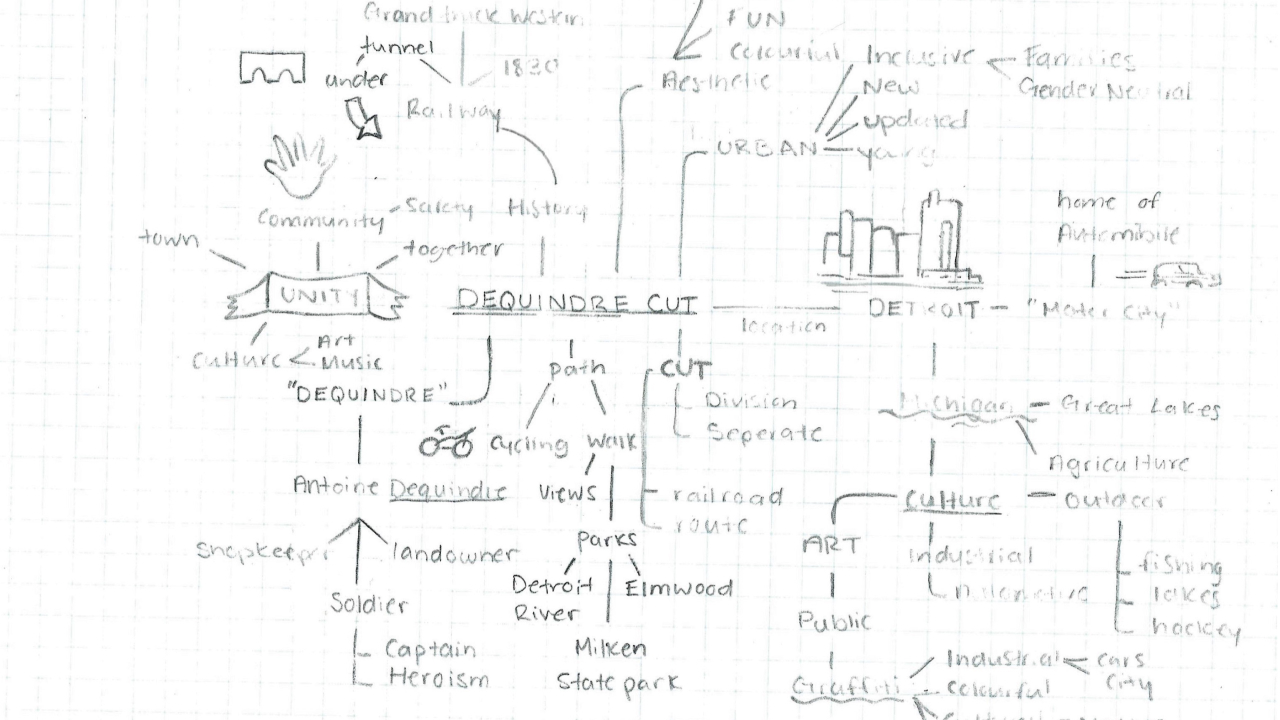 Grand
tunnel
under
1830
Railway
FUN
Aesthetic
Inclusive
Families
Gender Neutral
New
updated
URBAN
Community
Safety
together
town
UNITY
Culture
Art
Music
History
DEQUINDRE CUT
location
DETROIT
home of
Automobile
"Motor City"
"DEQUINDRE"
Antoine Dequindre
landowner
Soldier
Captain
Heroism
path
cycling
walk
views
parks
Detroit
River
Elmwood
Milken
State park
CUT
Division
Seperate
railroad
route
Michigan
Great Lakes
Agriculture
Culture
outdoor
fishing
lakes
hockey
ART
Public
Graffiti
Industrial
Industrial
colourful
cars
city